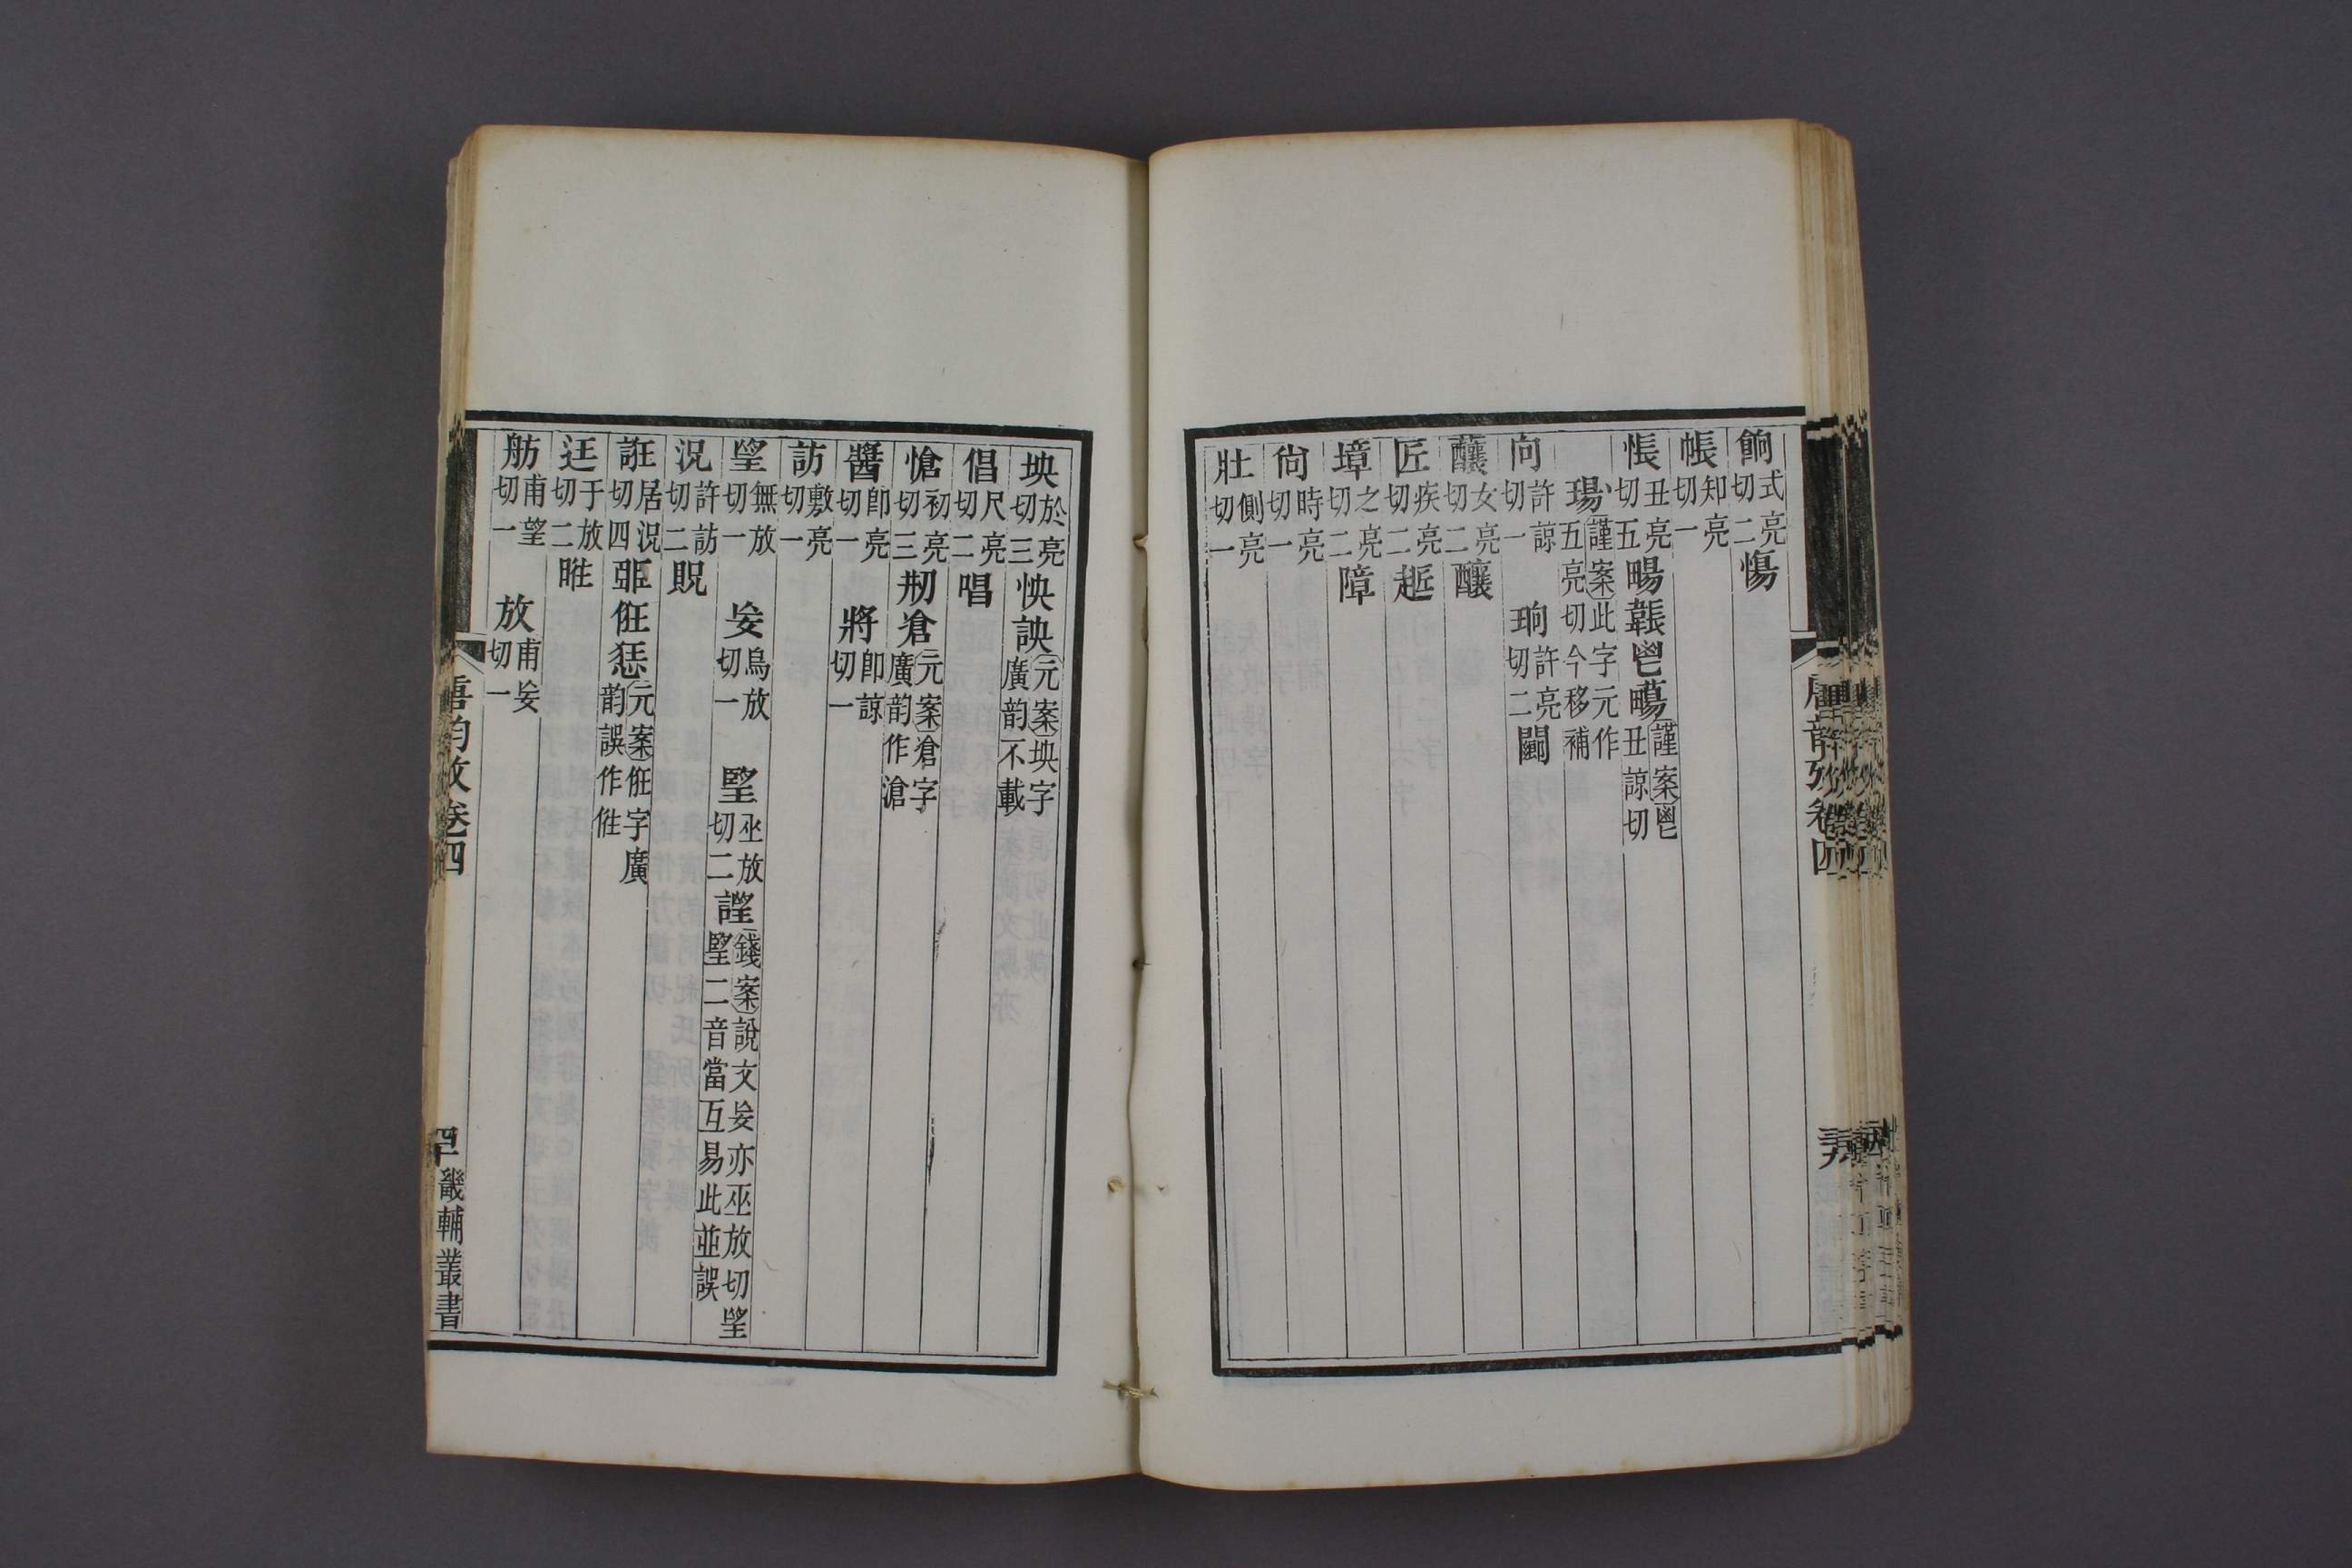 餉式亮切二慯
帳知亮切一
悵丑亮切五暢韔鬯畼謹案鬯丑諒切
瑒謹案此字元作五亮切今移補
向許諒切一珦許亮切二闀
釀女亮切二釀
匠疾亮切二𧻷
墇之亮切二障
尙時亮切一
壯側亮切一
坱於亮切三怏訣元案坱字廣韵不載
倡尺亮切二唱
愴初亮切三刱凔元案凔字廣韵作滄
醬卽亮切一將卽諒切一
訪敷亮切一
朢無放切一妄烏放切一朢巫放切二𧫢錢案說文妄亦巫放切朢朢二音當互易此並誤
況許訪切二貺
誑居況切四臦俇惩元案俇字廣韵誤作𠈱
迋于放切二暀
舫甫望切一放甫妄切一
唐韵攷卷四
畿輔叢書